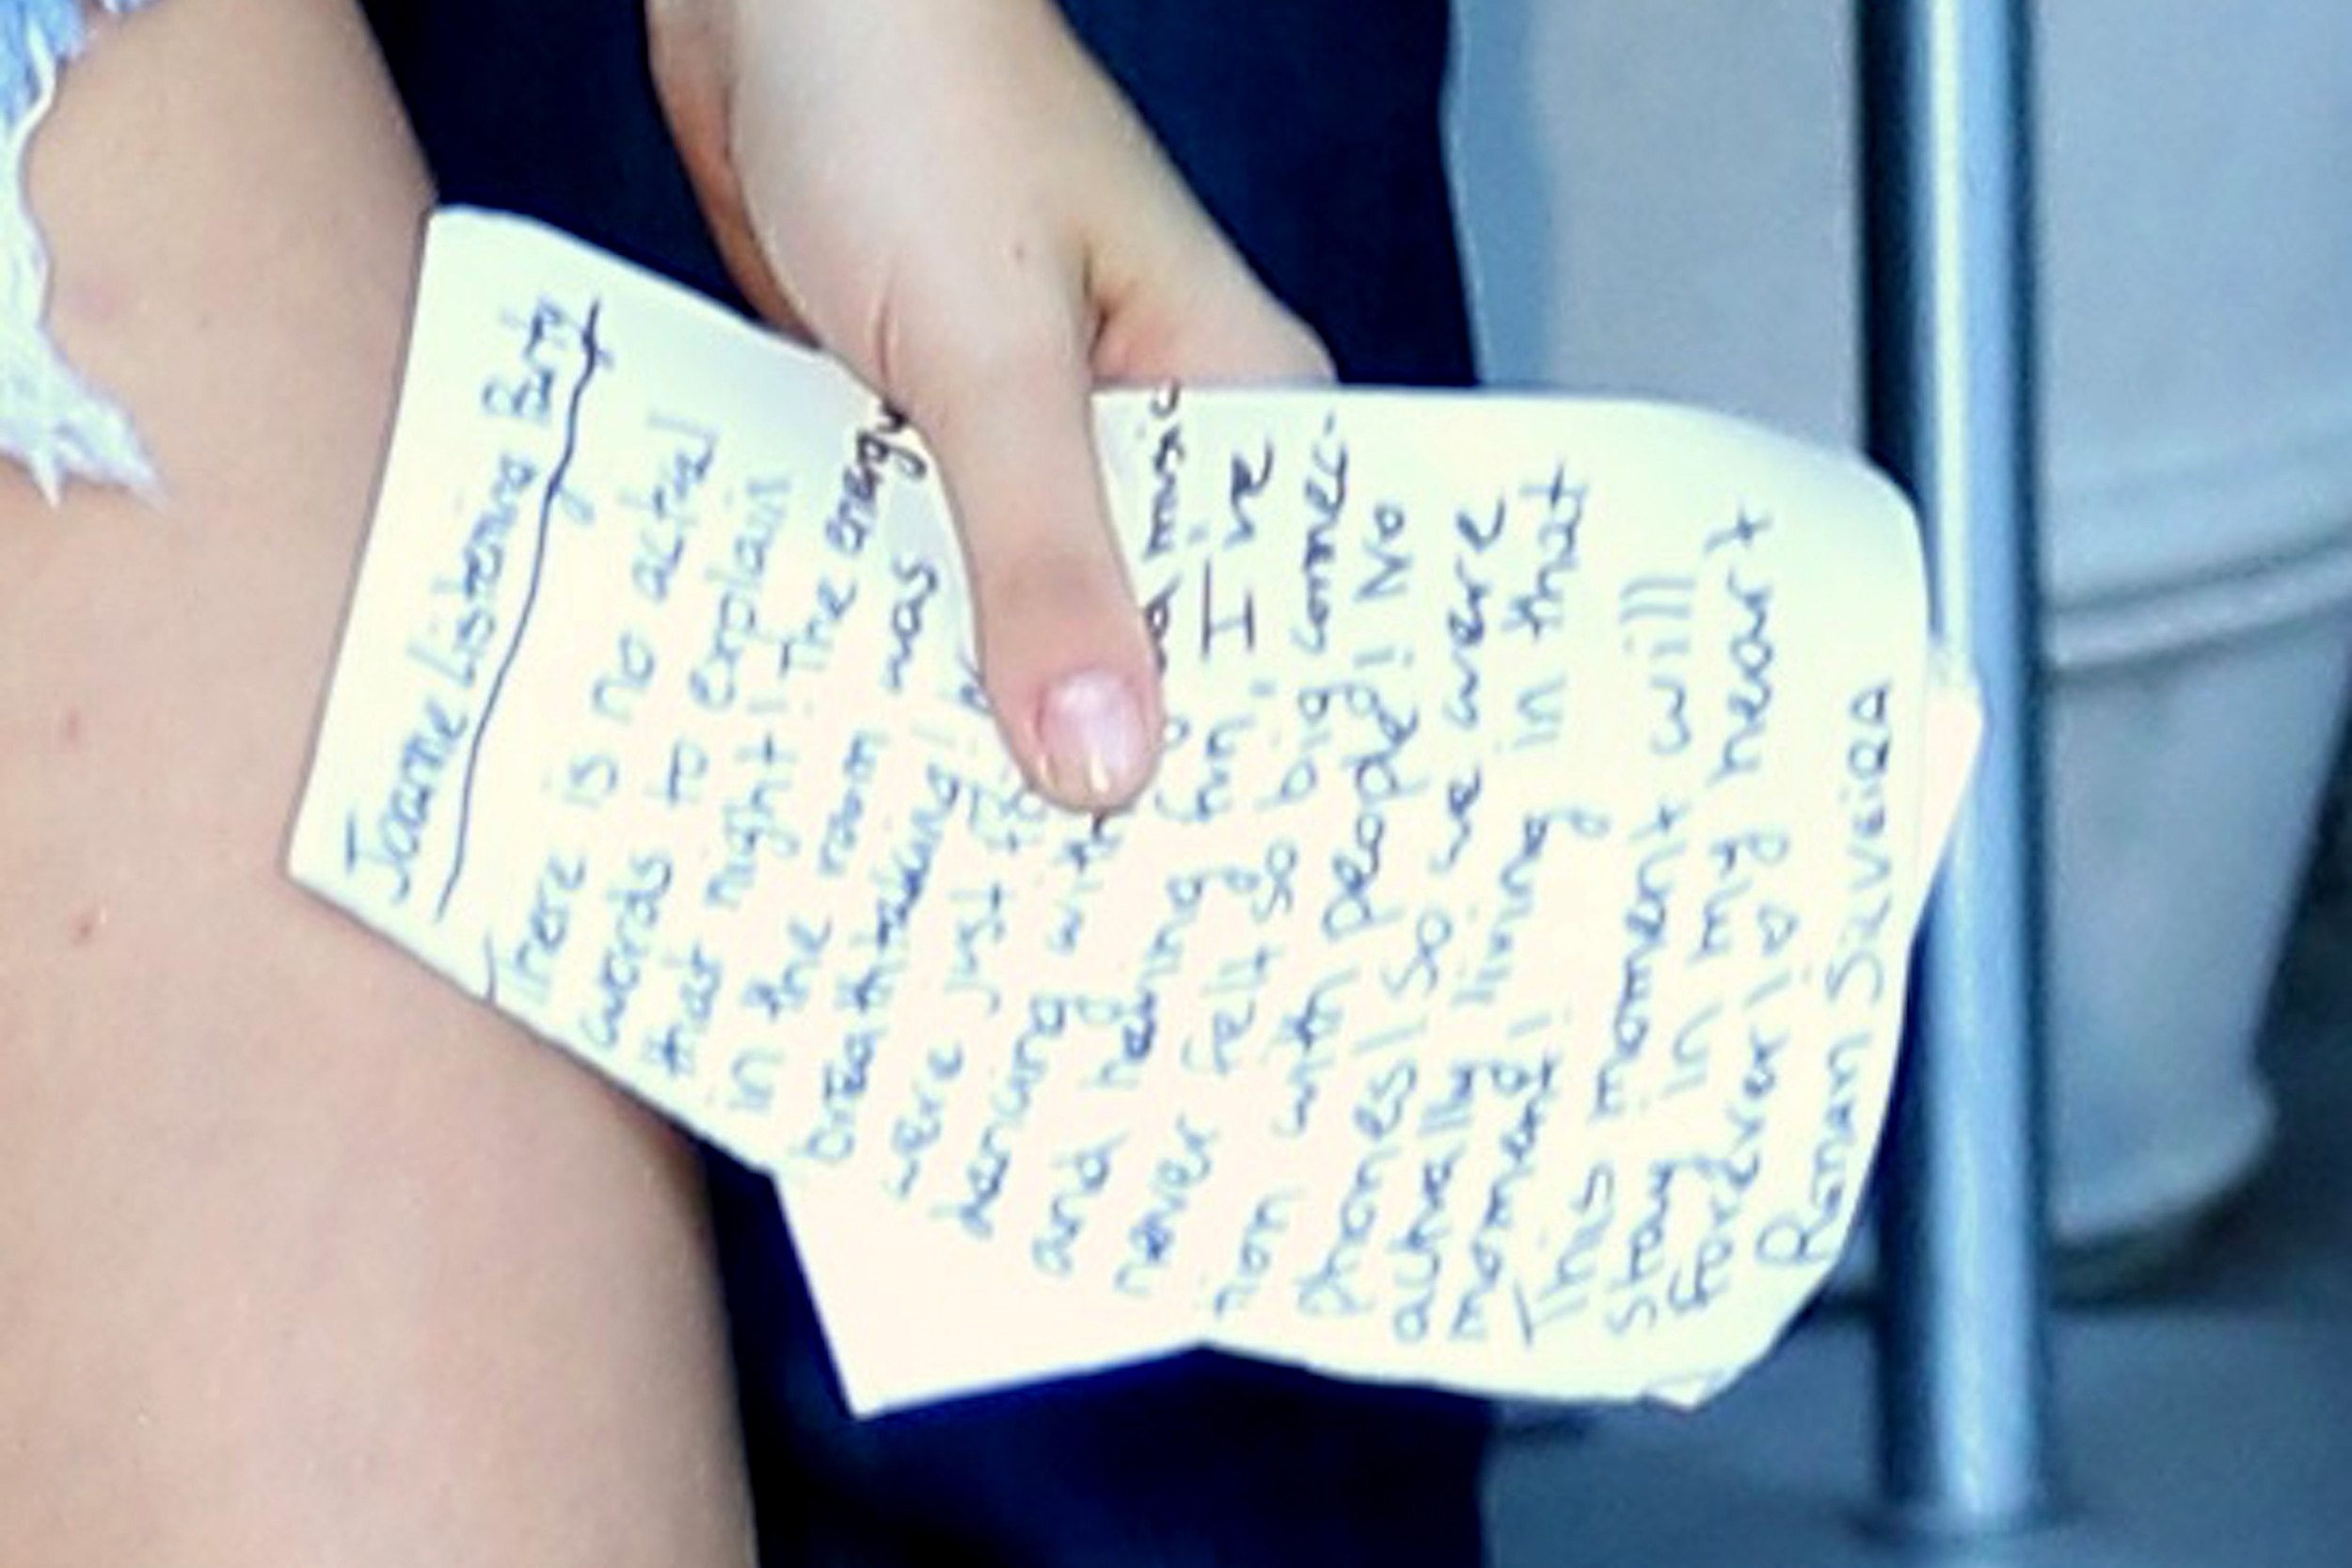 Joanne Listening Party
There is no actual
words to explain
that night! The energy
in the room was
breathtaking!
were just
dancing with music
and having fun, I 've
never felt so big connec-
tion with people! No
phones! So we were
actually living in that
moment!
This moment will
stay in my heart
forever!
Renan Silveira